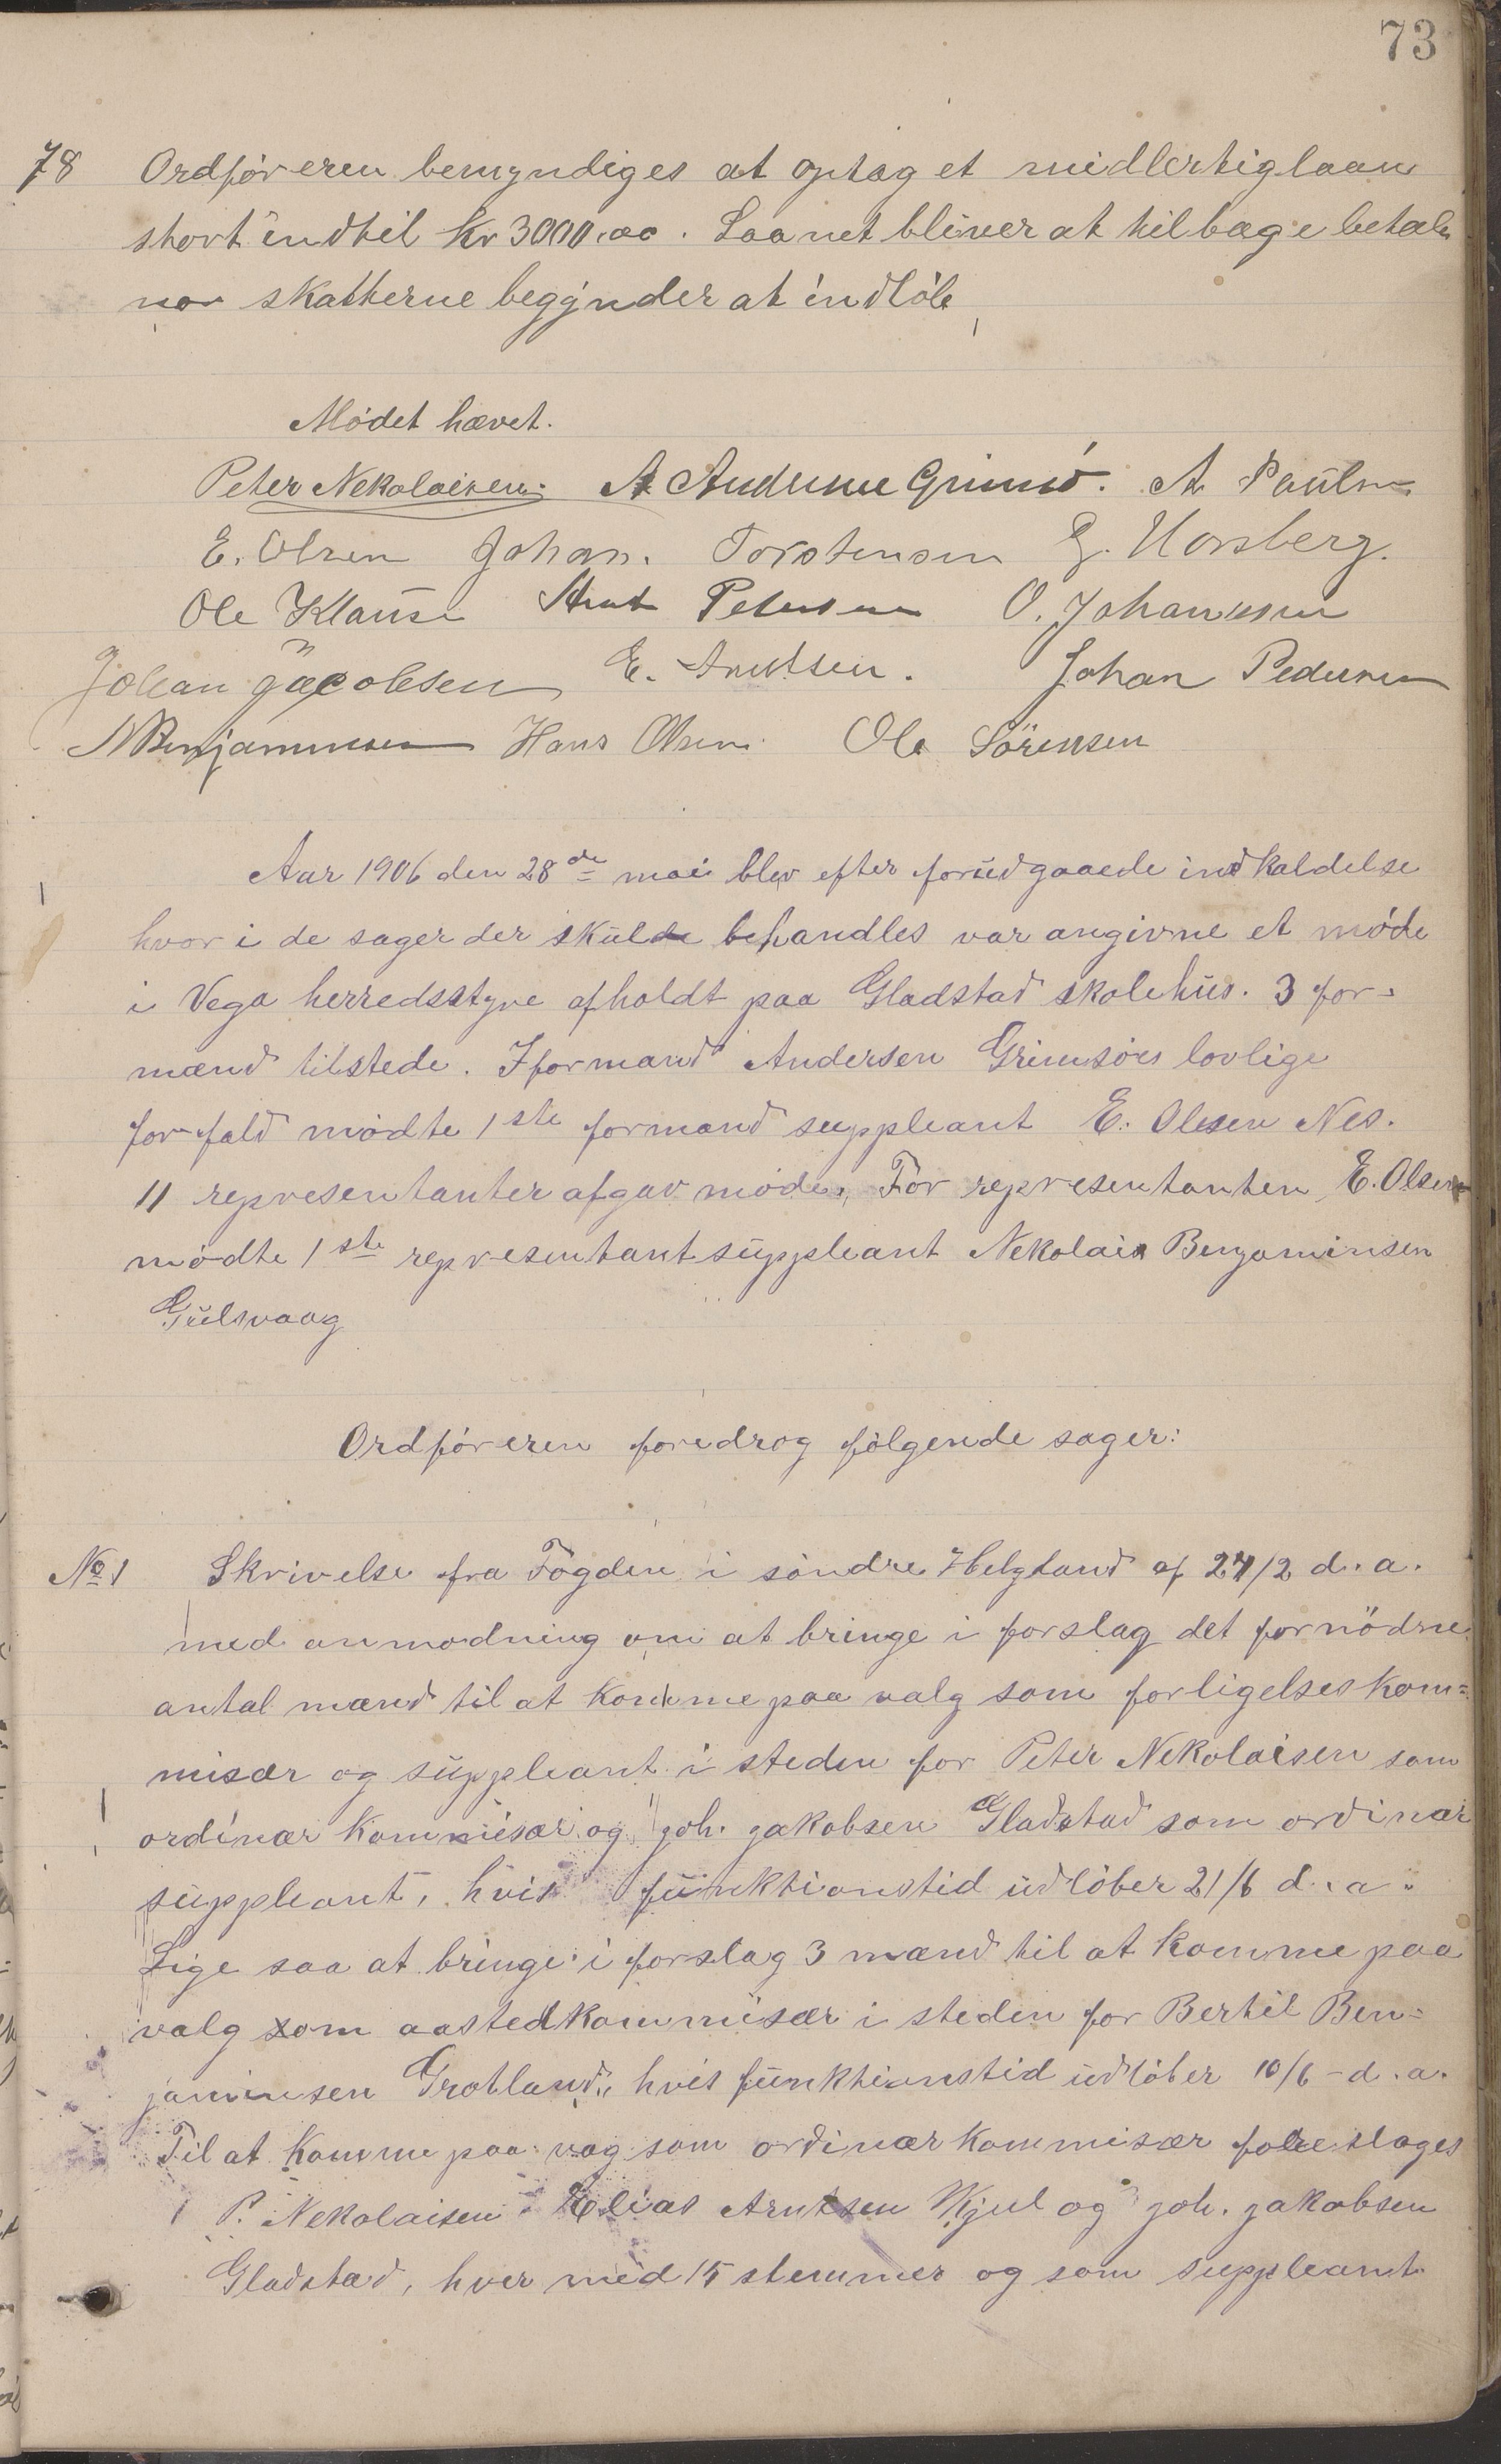 73
78 Ordføreren bemyndiges at optag et midlertig laan
stort indtil Kr 3000.00. Laanet bliver at tilbage betale
nor skatterne begynder at indløb
Mødet hævet.
Peter Nekolaisen. A Andersen Grimsø. A Paulsen
E. Olsen Johan. Torstensen G. Horsberg.
Ole Klausen Petersen O. Johansen
Johan Jacobsen E. Arntsen. Johan Pedersen
N Benjaminsen Hans Olsen. Ole Sörensen
Aar 1906 den 28de mai blev efter forudgaaede indkaldelse
hvor i de sager der skulde behandles var angivne et møde
i Vega herredsstyre afholdt paa Gladstad skolehus. 3 for-
mænd tilstede. I formand Andersen Grimsøes lovlige
forfald mødte 1ste formand suppleant E. Olesen Nes.
11 representanter afgav møde. For representanten E. Olsen
mødte 1ste representantsuppleant Nekolai Benjaminsen
Gulsvaag
Ordføreren foredrog følgende sager:
No 1 Skrivelse fra Fogden i søndre Helgeland af 27/2 d. a.
med anmodning om at bringe i forslag det fornødne
antal mænd til at komme paa valg som forligelseskom=
misær og suppleant i steden for Peter Nekolaisen som
ordinær Kommisær og joh. jakobsen Gladstad som ordinær
suppleant, hvis funktionstid udløber 21/6 d. a.
Lige saa at bringe i forslag 3 mænd til at komme paa
valg som aastedkommisær i steden for Bertil Ben=
jaminsen Grotland, hvis funktionstid udløber 10/6 - d. a.
Til at komme paa vag som ordinær kommisær foreslages
P. Nekolaisen. Elias Arntsen Kjul og joh. jakobsen
Gladstad, hver med 15 stemmer og som suppleant